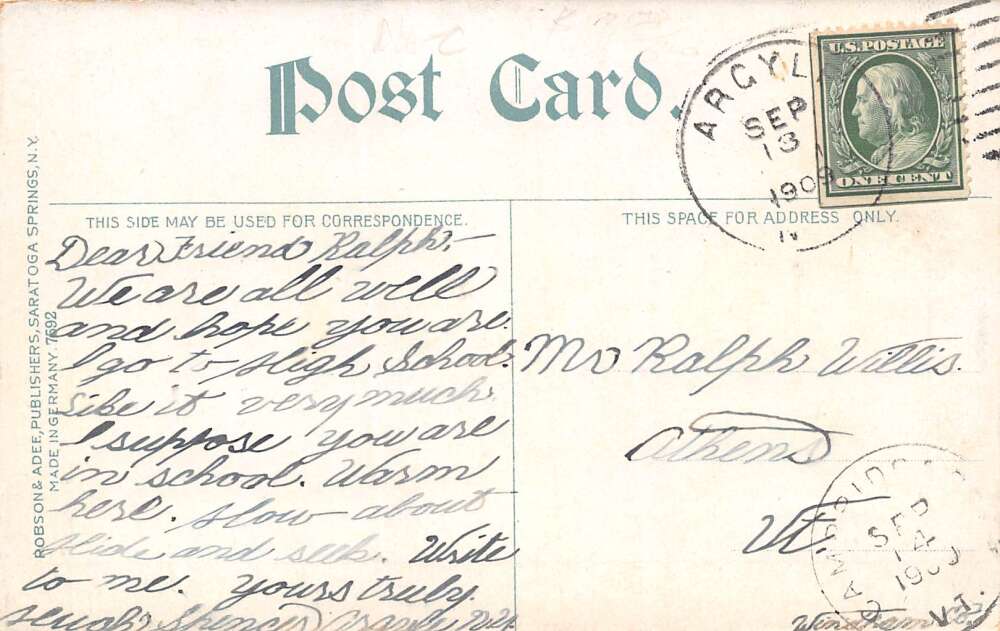 Post Card.
ARGYL
SEP
13
1909
N
U.S. POSTAGE
ONE CENT
ROBSON & ADEE, PUBLISHERS, SARATOGA SPRINGS, N.Y.
MADE IN GERMANY. 7692
THIS SIDE MAY BE USED FOR CORRESPONDENCE.
Dear Friend Ralph,-
We are all well
and hope you are.
I go to High School.
Like it very much.
I suppose you are
in school. Warm
here. How about
Hide and seek. Write
to me. Yours truly.
Hugh Spencer
THIS SPACE FOR ADDRESS ONLY.
Mr Ralph Willis.
Athens
Vt.
Windham Co.
CAMBRIDGEPO
SEP
14
1909
VT.